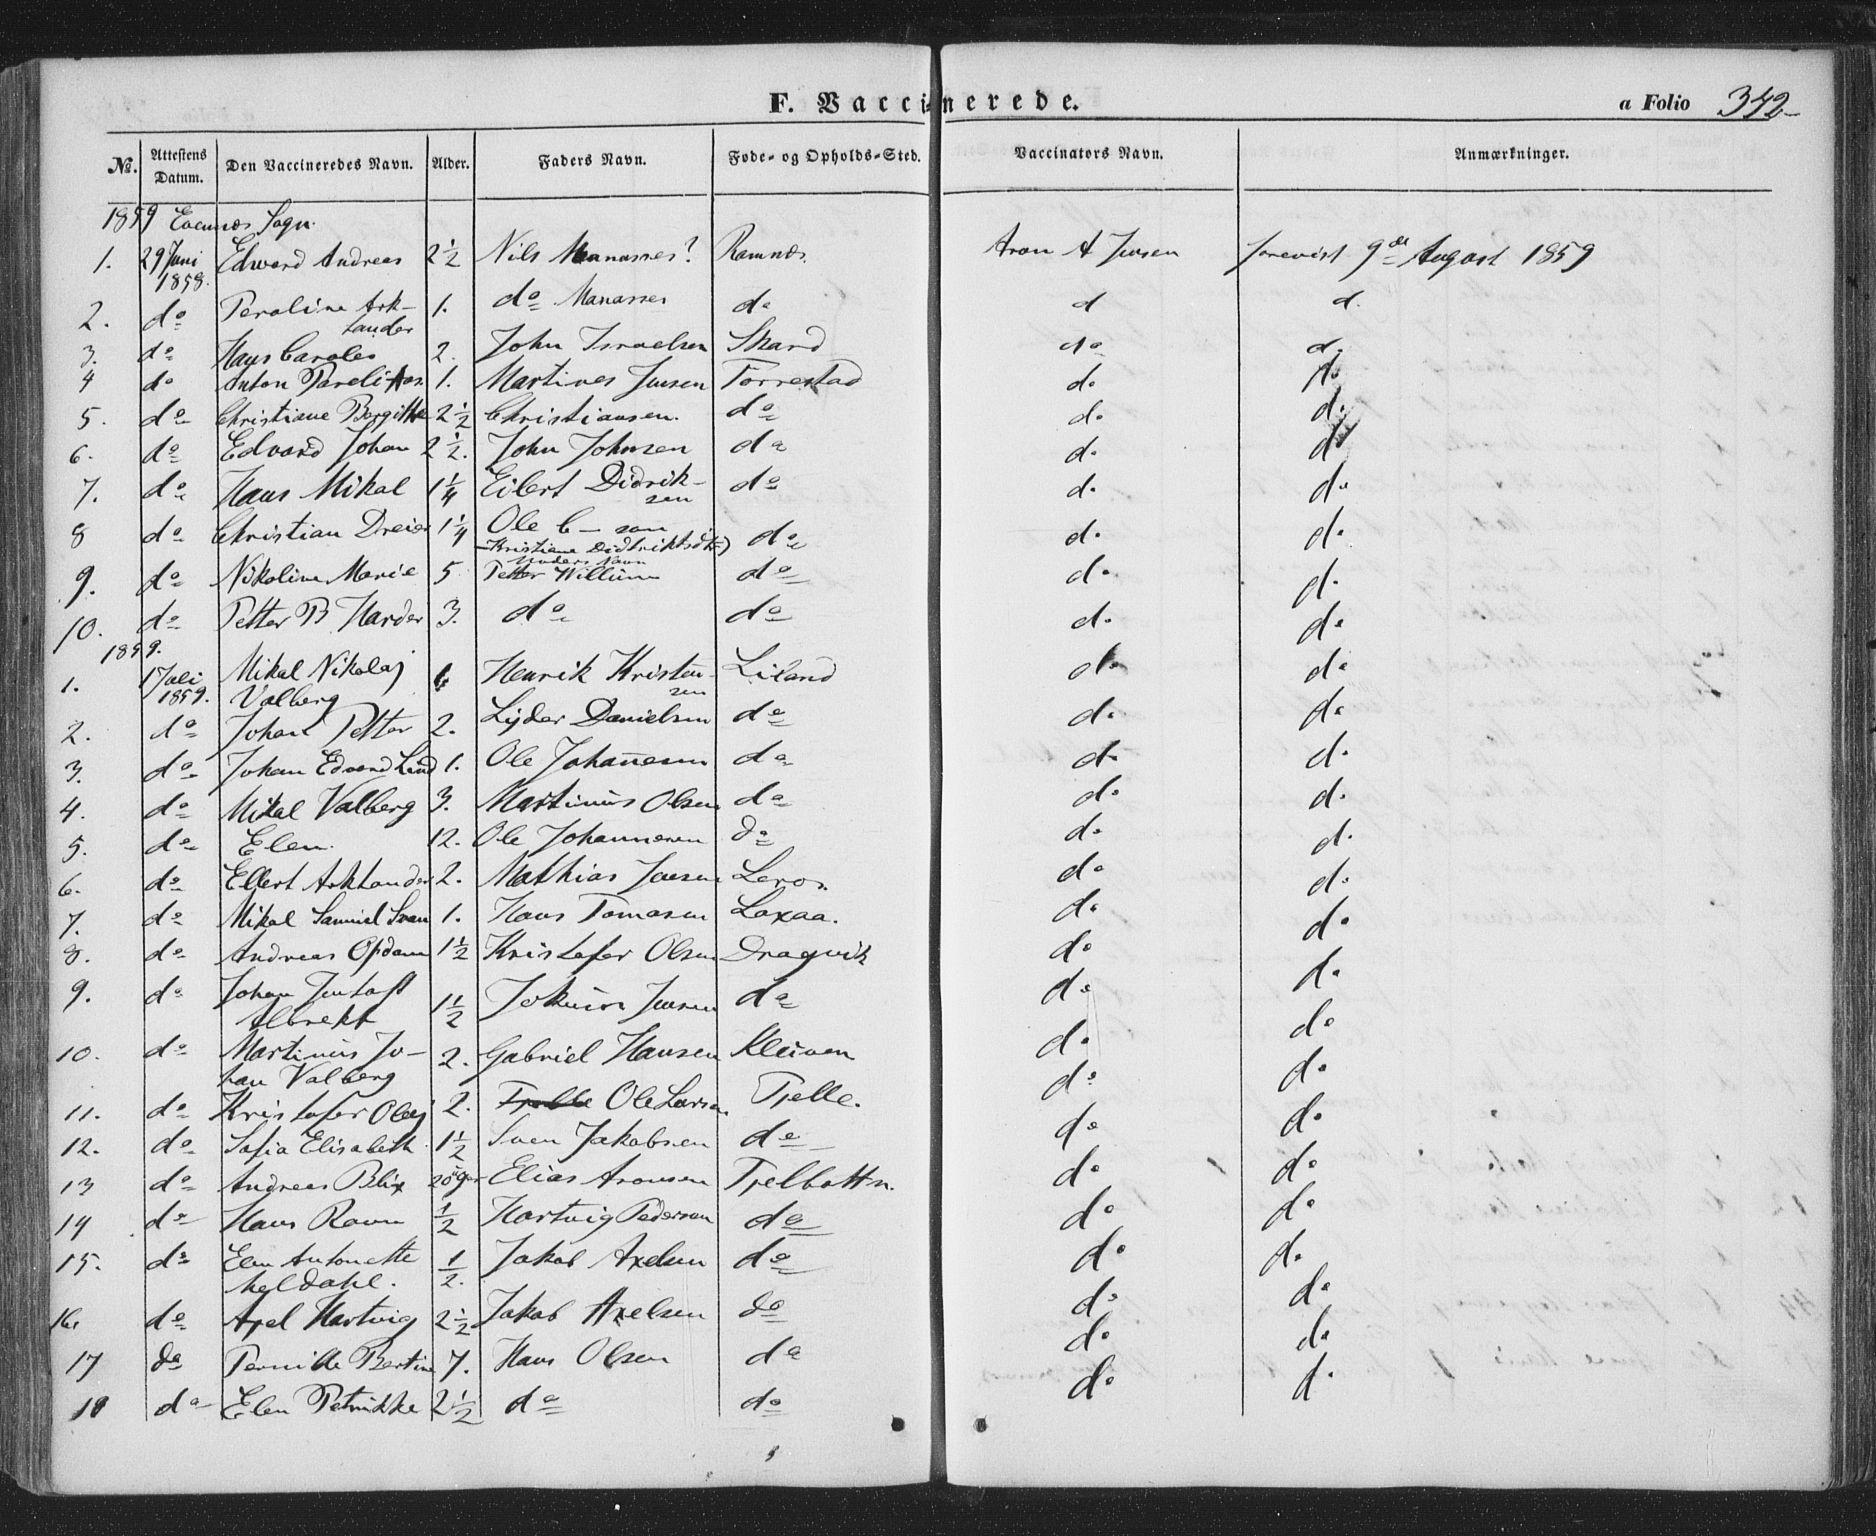 F. Vaccinerede.
a Folio 342
No. Attestens Datum. Den Vaccineredes Navn. Alder. Faders Navn. Føde- og Opholds-Sted. Vaccinators Navn. Anmærkninger.
1859 Evenæs Sogn.
1. 29 Juni 1858. Edward Andreas 2 1/2 Nils Manasses? Ramnæs. Aron A Jensen forevist 9de August 1859
2. do Peroline Ark- 1. do Manasses do d d.
lander
3. do Hans Caroles 2. John Israelsen Skard do d.
4 do Anton Pareli 1. Martines Jensen Torrestad do do
5. do Christiane Bergitte 2 1/2 Christiansen. do do do
6. do Edvard Johan 2 1/2. John Johnsen do do do
7. do Hans Mikal 1 1/4 Eilert Didrik- do do do
sen
8 do Christian Dreier 1 1/4 Ole C - sen do do do
Kristiane Didtriktsdtr)
Moders Navn
9. do Nikoline Marie 5 Petter Willum do do do
10. do Petter B Harder 3. do do do do
1859.
1. 1 Juli 1859. Mikal Nikolaj Henrik Kristen- Liland do do
Valberg sen
2. do Johan Petter 2. Lyder Danielsen do do do
3. do Johan Edvard Lind 1. Ole Johanesen do do do
4. do Mikal Valberg 3. Martinus Olsen do do do
5. do Elen. 12. Ole Johannesen do do do
6. do Ellert Arktander 2. Mathias Jensen Leros. do do
7. do Mikal Samuel Svan 1. Hans Tomasen Laxaa. do do
8. do Andreas Opdam 1 1/2 Kristofer Olsen Dragvik do do
9. do Johan 1 1/2 Jokum Jensen do do do
Albrekt
10. do Martinus Jo- 2. Gabriel Hansen Kleiven do do
han Valberg
11. do Kristofer Olaj 2. Ole Larsen Tjelle. do do
12. do Sofia Elisabeth 1 1/2 Sven Jakobsen do do do
13 do Andreas Blix Elias Aronsen Tjelbottn. do do
14 do Hans Ravn 1/2 Hartvig Pedersen do do do
15. do Elen Antonette 1/2. Jakob Axelsen do do do
Meldahl.
16. do Axel Hartvig 2 1/2 Jakob Axelsen do do do
17 do Pernille Bertine 7. Hans Olsen do do do
18 do Elen Petrikke 2 1/2 do do do do